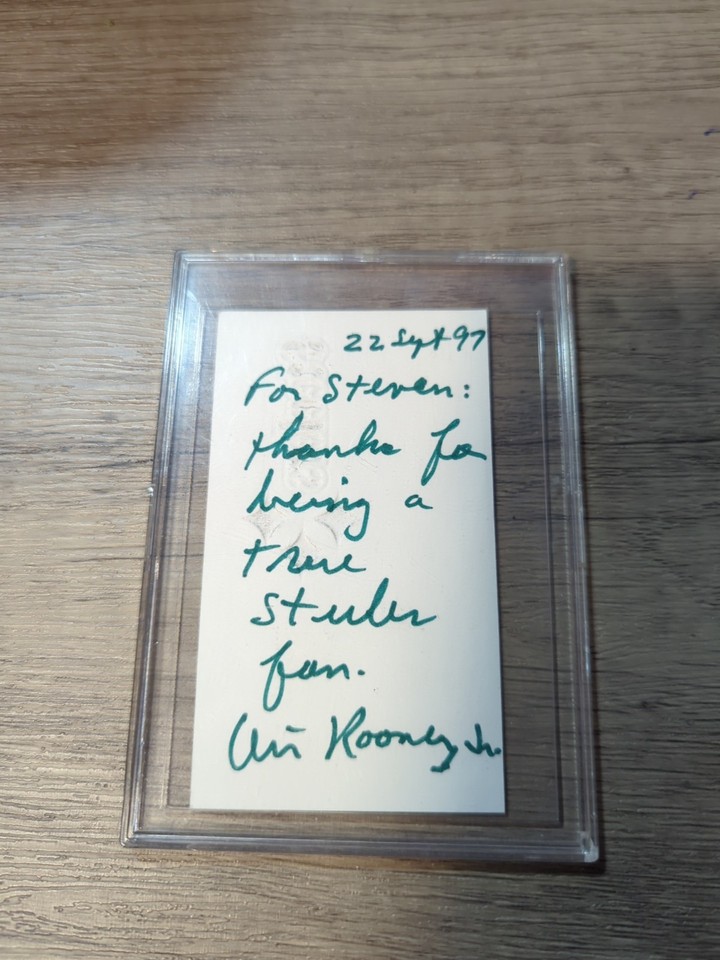 22 Sept 97
For Steven:
thanks for
being a
true
Steeler
fan.
Art Rooney, Jr.